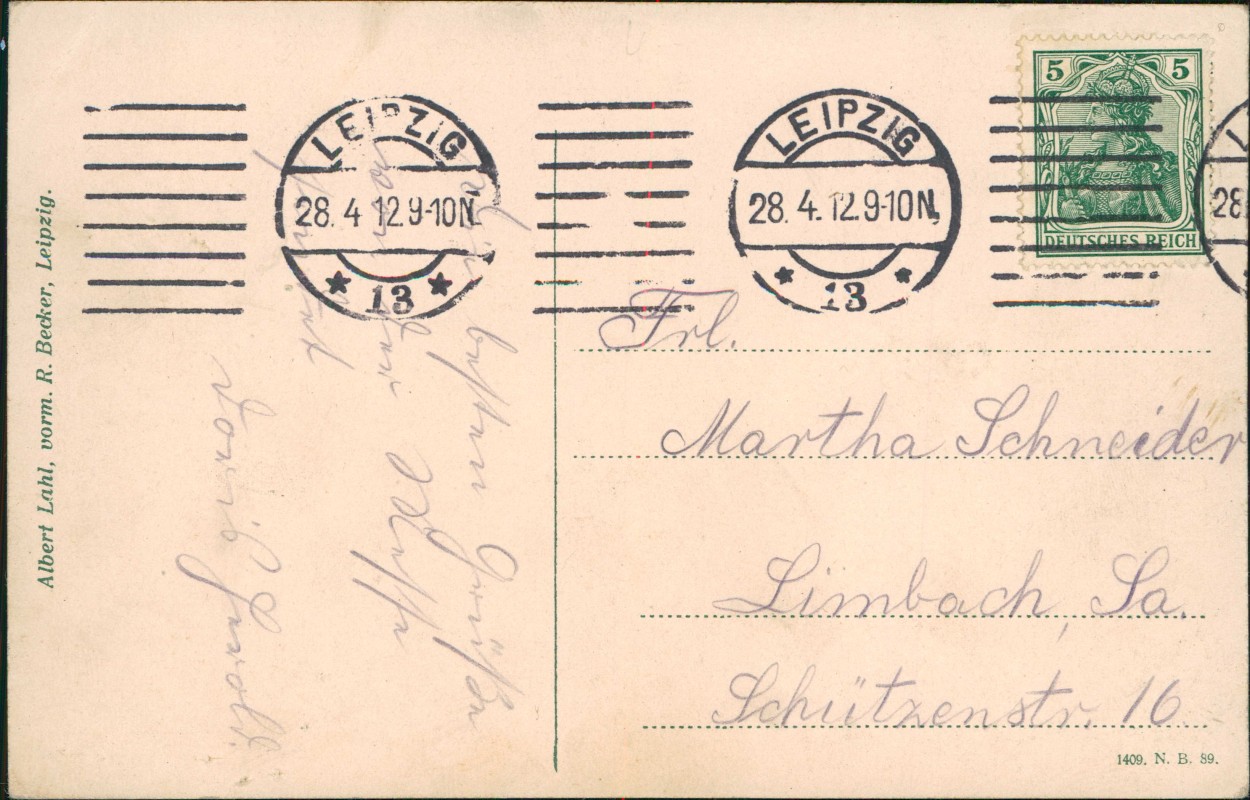 Albert Lahl, vorm. R. Becker, Leipzig.
LEIPZIG
28. 4 12. 9-10 N.
13
LEIPZIG
28. 4. 12. 9-10 N.
13
5 5
DEUTSCHES REICH
28
Die besten Grüße
von der Messe
Frl.
Martha Schneider
Limbach, Sa.
Schützenstr. 16
1409. N. B. 89.